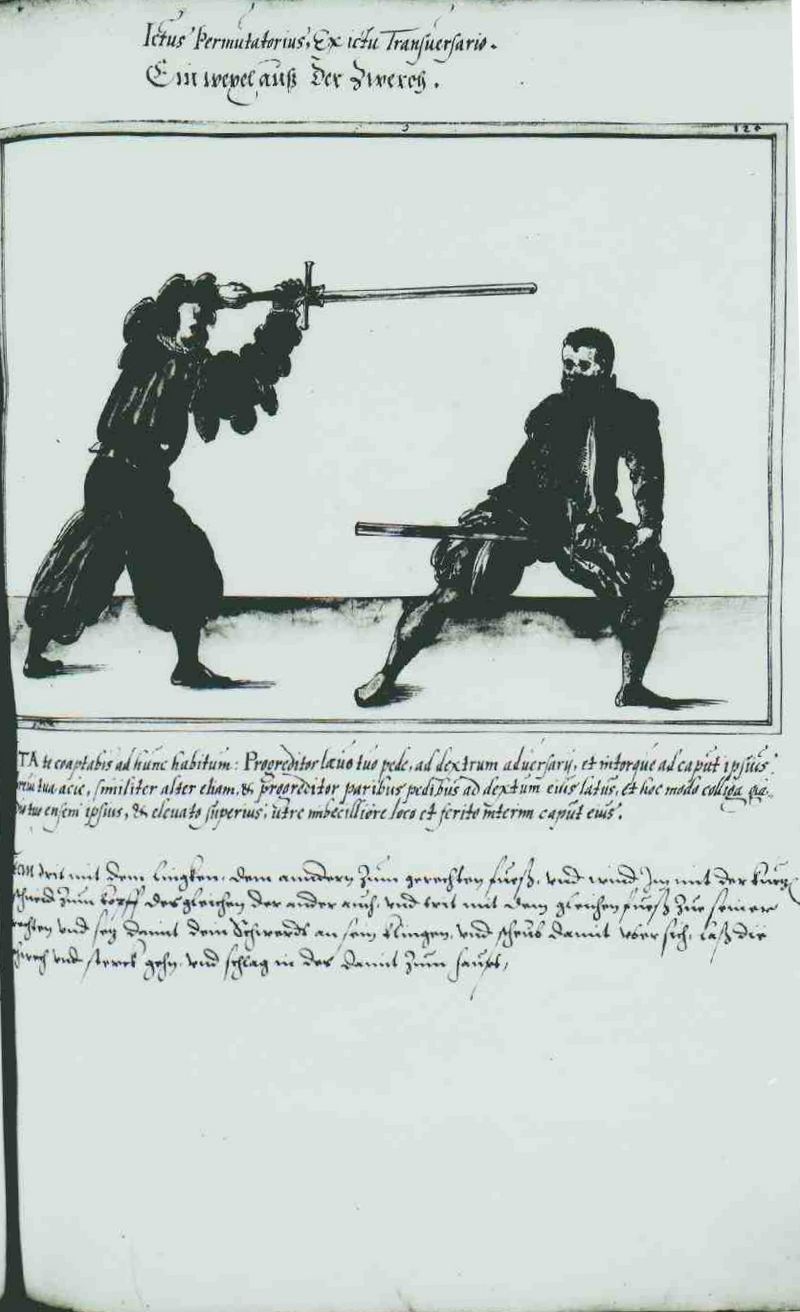 Ictus Permutatorius, Ex ictu Transversario.
Ein wexel auß der Zwerch.
TA te coaptabis ad hunc habitum: Progreditor laevo tuo pede, ad dextrum adversarij, et intorque ad caput ipsius
tua acie, similiter alter etiam, & progreditor paribus pedibus ad dextrum eius latus, et hoc modo colliga
tuo ensem ipsius, & elevato superius, utere imbecilliore loco et ferito interim caput eius.
trit mit dem lingken, dem anndern zum gerechten fueß, und wind Im mit der kurtz
schneid zum kopff desgleichen der ander auch, und trit mit dem gleichen fueß zue seiner
rechten und setz damit dem Schwerdt an sein klingen, und scheub damit uber sich, laß die
und sterck gehn, und schlag in des damit zum haupt,